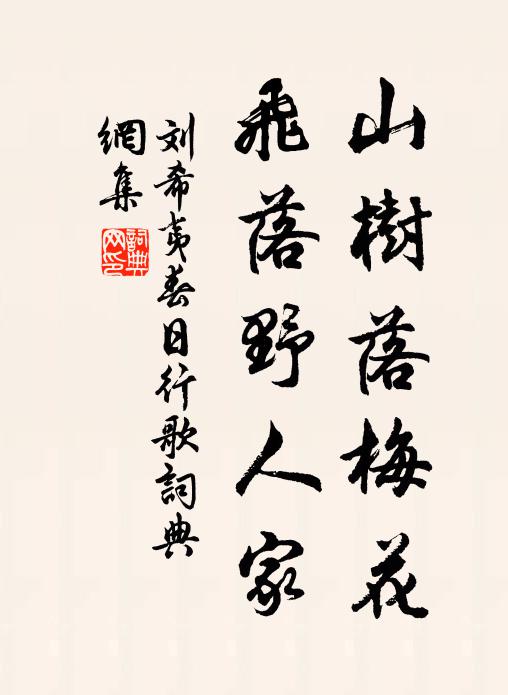 山樹落梅花
飛落野人家
刘希夷春日行歌詞典
網集
詞典
网印